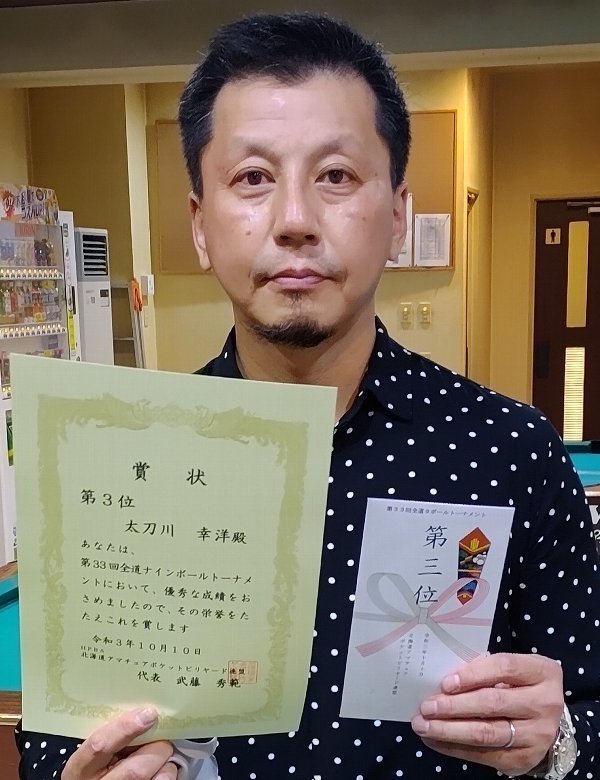 賞状
第3位
太刀川 幸洋殿
あなたは、
第33回全道ナインボールトーナメ
ントにおいて、優秀な成績をお
さめましたので、その栄誉をた
たえこれを賞します
令和3年10月10日
HPBA
北海道アマチュアポケットビリヤード連盟
代表 武藤 秀範
第33回全道9ボールトーナメント
第三位
令和三年十月十日
北海道アマチュア
ポケットビリヤード連盟